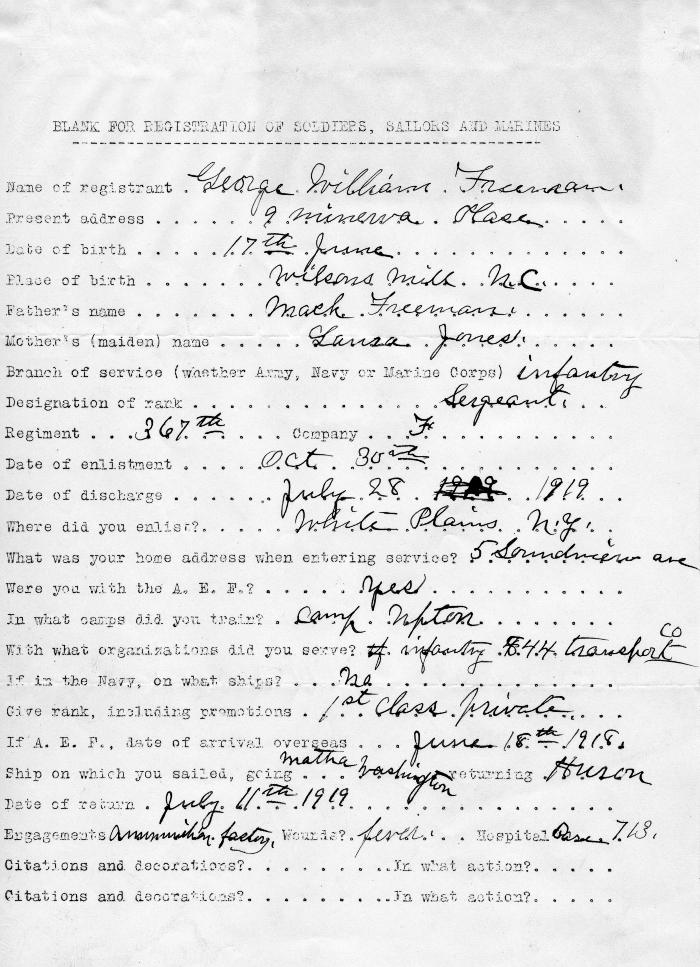 BLANK FOR REGISTRATION OF SOLDIERS, SAILORS AND MARINES
Name of registrant . George William Freeman.
Present address . . . . . 9 minerva Place
Date of birth . . . . 17th June
Place of birth . . . . . Wilsons Mill N.C.
Father's name . . . . . Mack Freeman.
Mother's (maiden) name . . . . Laura Jones.
Branch of service (whether Army, Navy or Marine Corps) infantry
Designation of rank . . . . . . . . . Sergeant.
Regiment . . . 367th . . . Company . . . F
Date of enlistment . . . . Oct. 30th
Date of discharge . . . . . July 28 1919
Where did you enlist? . . . . White Plains N.Y.
What was your home address when entering service? 5 Soundview ave
Were you with the A. E. F.? . . . . . yes
In what camps did you train? . camp Upton
With what organizations did you serve? infantry 844 transport Co
If in the Navy, on what ships? . . . no
Give rank, including promotions . 1st class private
If A. E. F., date of arrival overseas . . . June 18th 1918.
Ship on which you sailed, going . . . matha Washington returning Huron
Date of return . July 11th 1919
Engagements ammunition factory, Wounds? fever. . . Hospital Base 713.
Citations and decorations?. . . . . . . . . .In what action?. . . . . .
Citations and decorations?. . . . . . . . . .In what action?. . . . . .